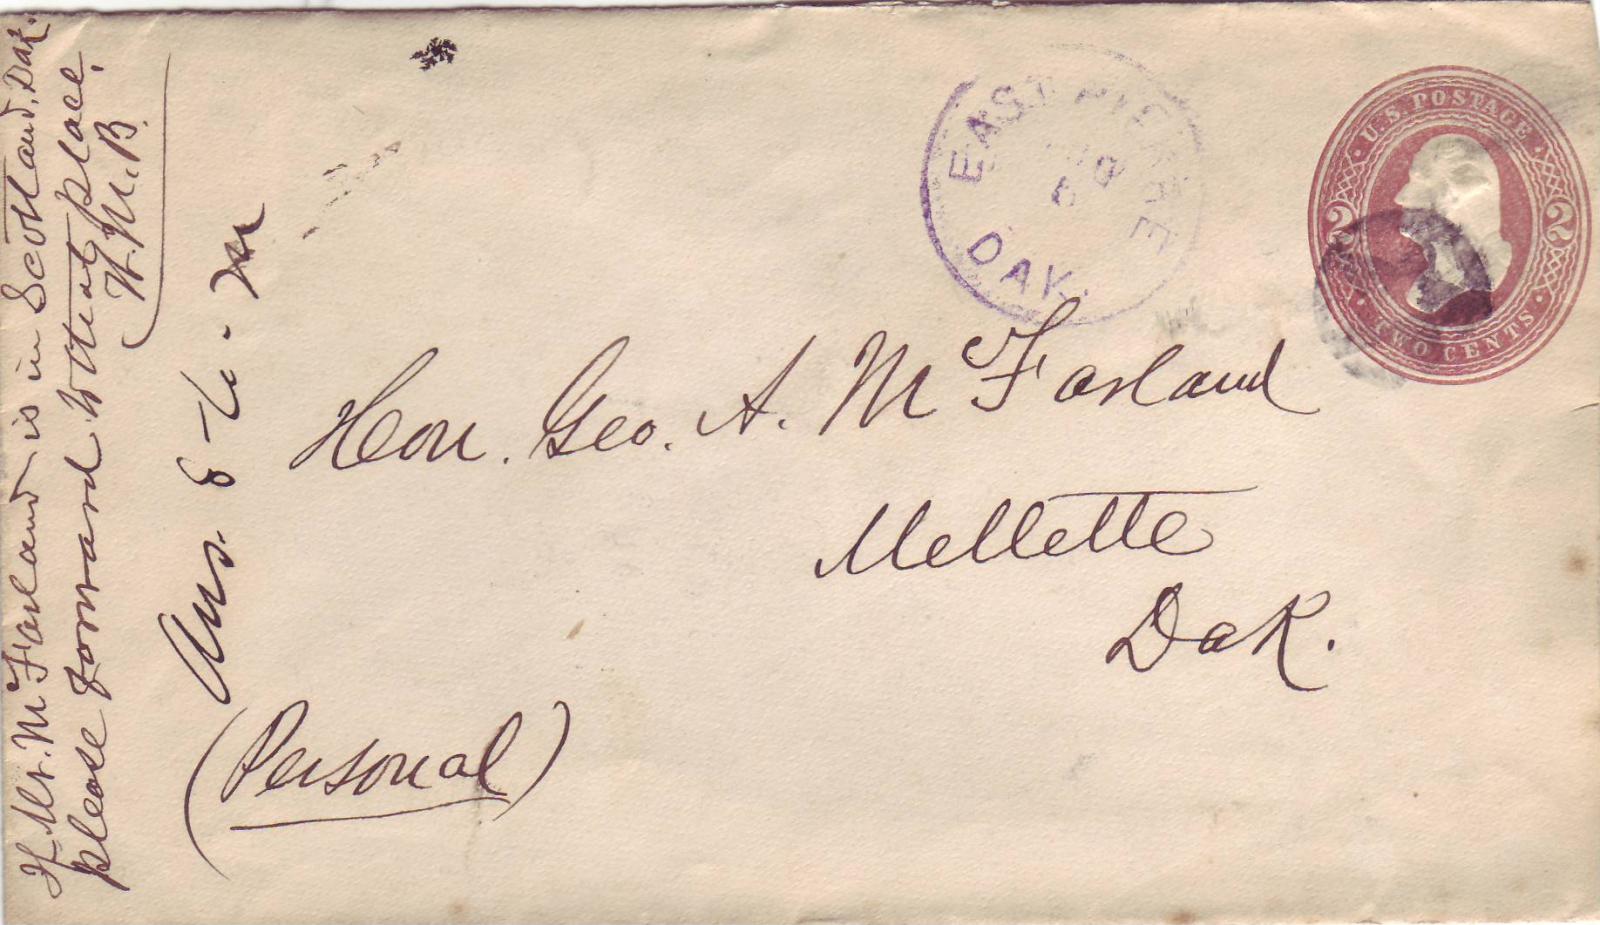 If Mr. McFarland is in Scotland, Dak.
please forward to that place.
W. M. B.
Ans.
EAST PIERRE
DAY.
U.S. POSTAGE
2 2
TWO CENTS
Hon. Geo. A. McFarland
Mellette
Dak.
(Personal)